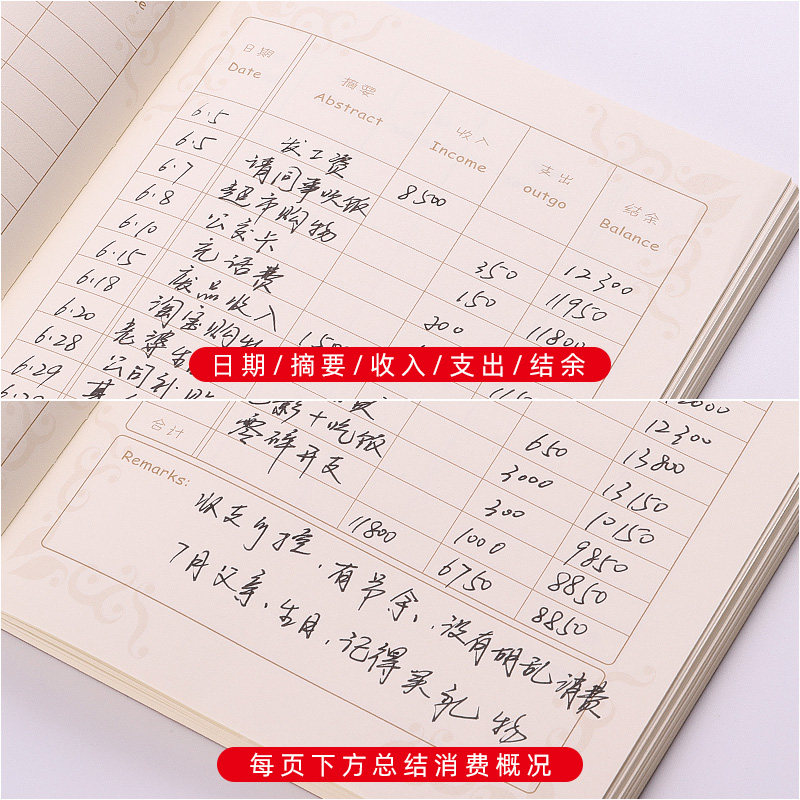 日期 摘要 收入 支出 结余
Date Abstract Income outgo Balance
6.5 发工资 8500 12300
6.5 请同事吃饭 350 11950
6.7 超市购物 150 11800
6.8 公交卡 200
6.10 充话费
6.15 废品收入
6.18 淘宝购物
6.20 老婆生
6.28 公司补贴
6.29
日期/摘要/收入/支出/结余
12300
650 13800
电影+吃饭 3000 13150
零碎开支 300 10150
1000 9850
8850
合计 11800 6750 8850
Remarks:
收支可控，有节余，没有胡乱消费
7月父亲生日，记得买礼物
每页下方总结消费概况